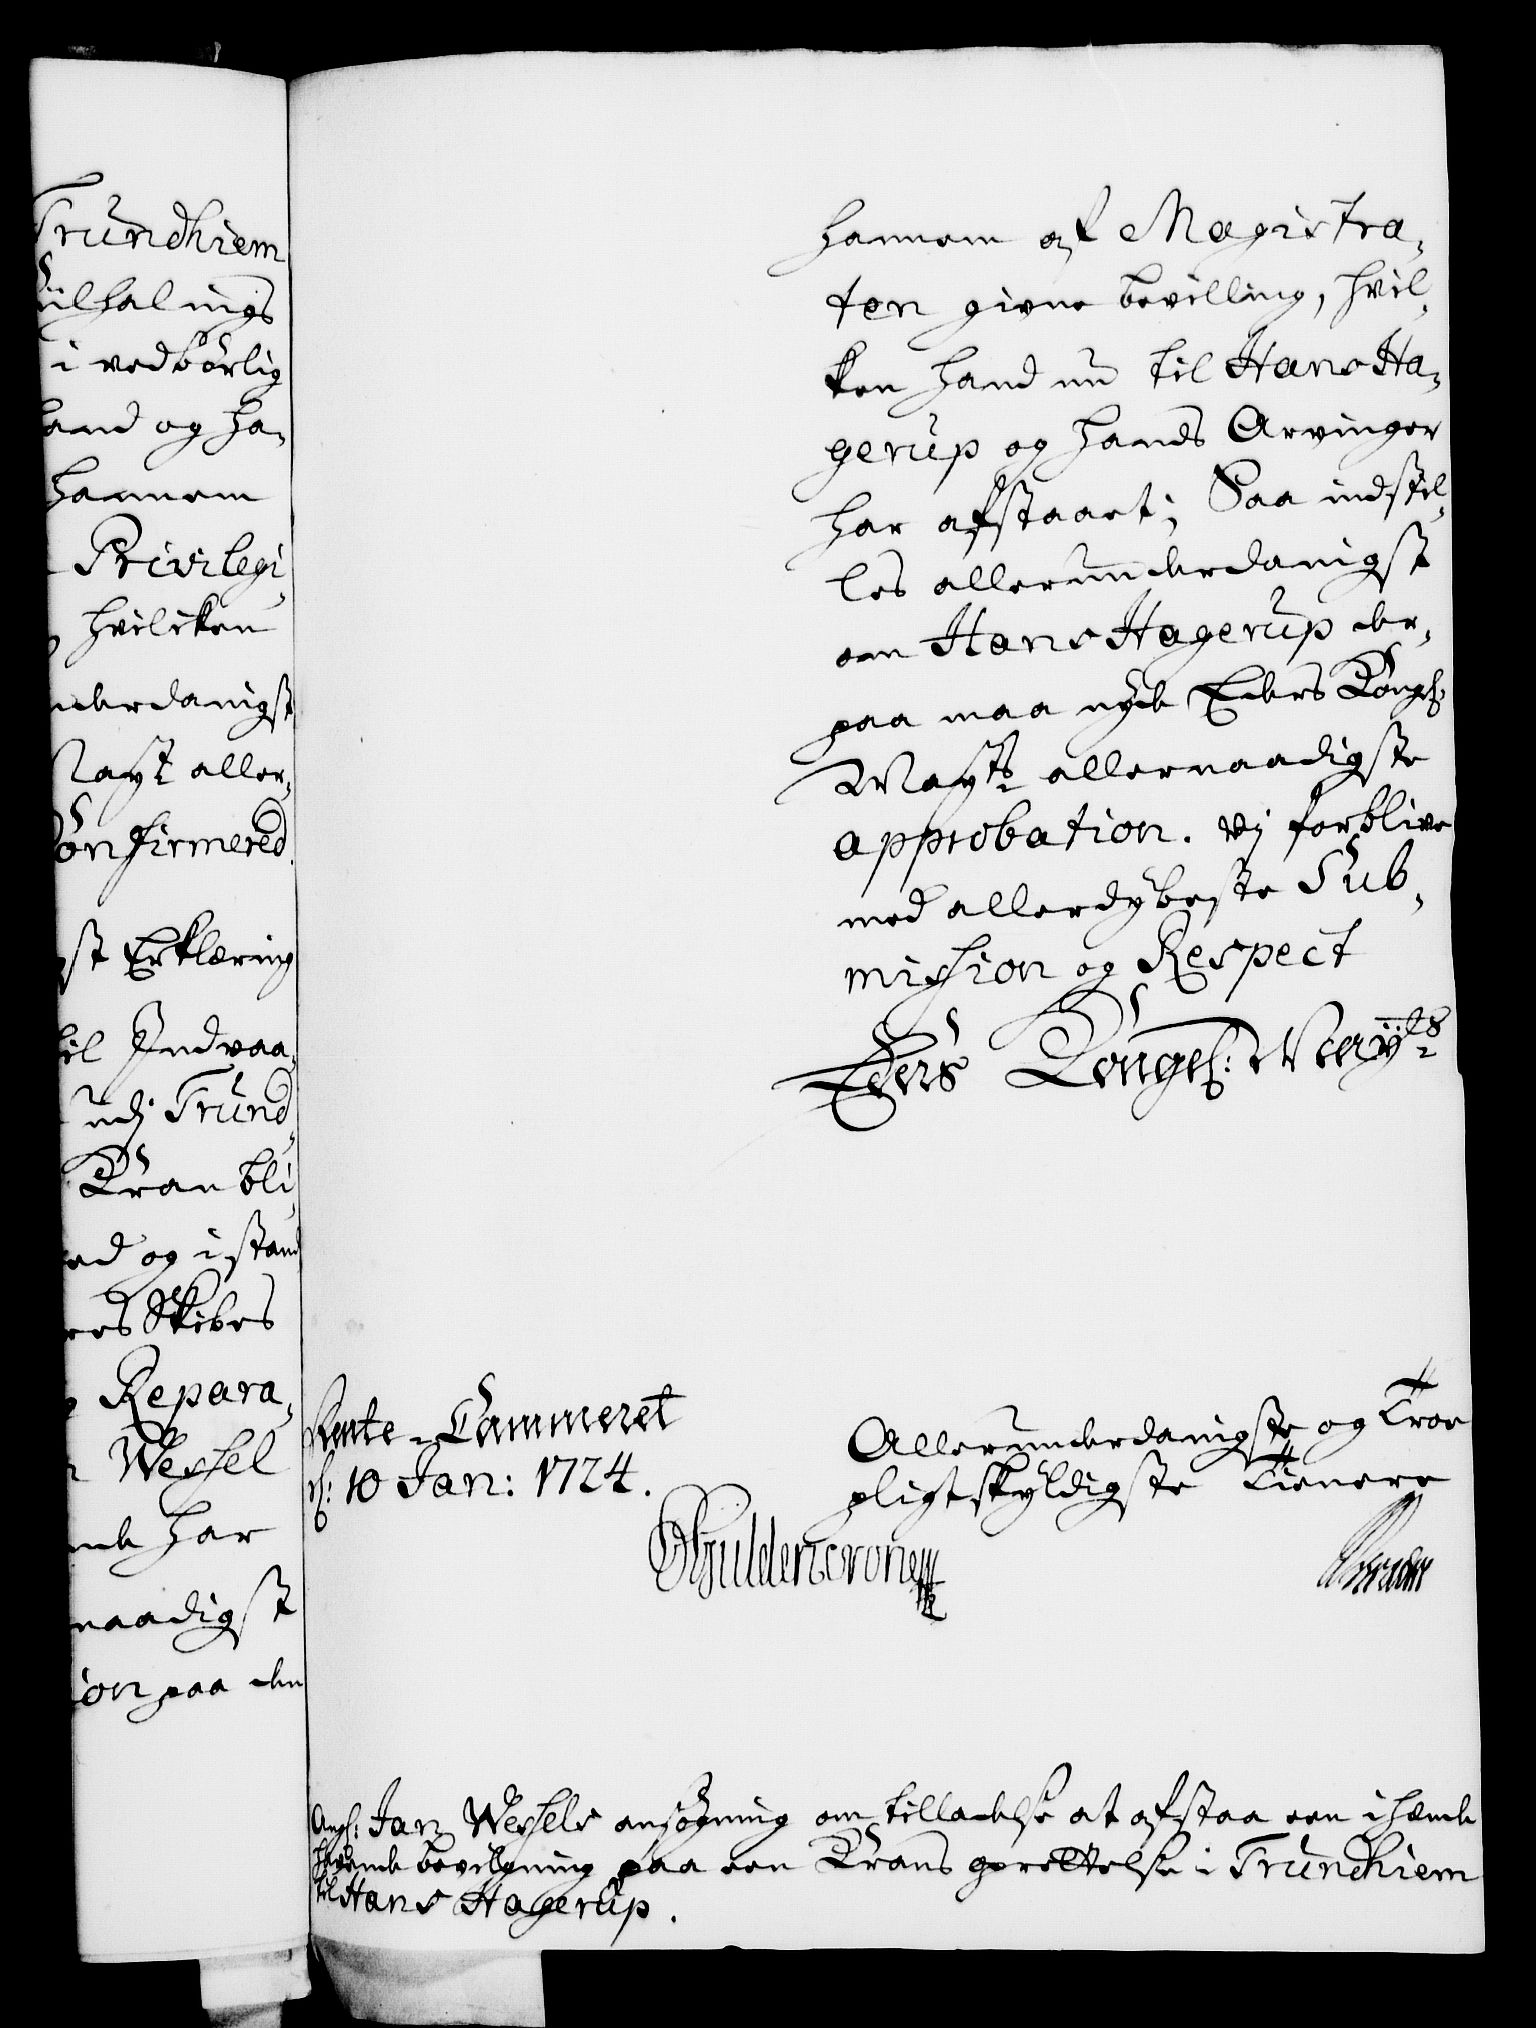 Trundhiem
kiilhalings
i vedbörlig
land og ha-
hannem
Privilegi-
hvilcken
underdanigst
Mayt aller-
Confirmered.
gst Erklæring
til Indvaa-
udj Trund-
Kran bli-
ved og i stand
res Skibes
Repara-
Wessel
nde har
naadigst
ion paa den
hannem af Magistra-
ten givne bevilling, hvil-
ken hand nu til Hans Ha-
gerup og hands Arvinger
har afstaaet; Saa indstil-
les allerunderdanigst
om Hans Hagerup der-
paa maa nyde Eders Kongl:
Mayts allernaadigste
approbation. Vj forblive
med allerdybeste Sub-
mission og Respect
Eders Kongel: Mayts
Rente-Cammeret
d: 10 Jan: 1724.
Allerunderdanigste og Troe
pligtskyldigste Tienere
Guldencrone
Angl: Jan Wessels ansøgning om tilladelse at afstaa een ihænde
havende bevilgning paa een Krans oprettelse i Trundhiem
til Hans Hagerup.